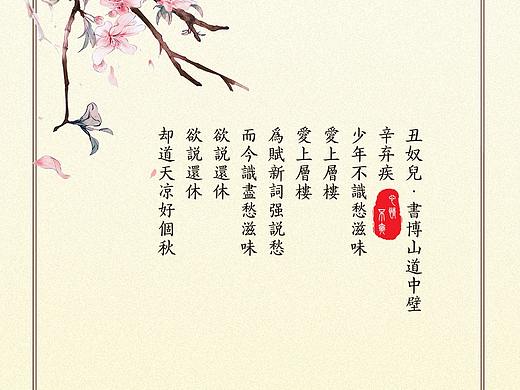 丑奴兒·書博山道中壁
辛弃疾
少年不識愁滋味
愛上層樓
愛上層樓
爲賦新詞强説愁
而今識盡愁滋味
欲説還休
欲説還休
却道天凉好個秋